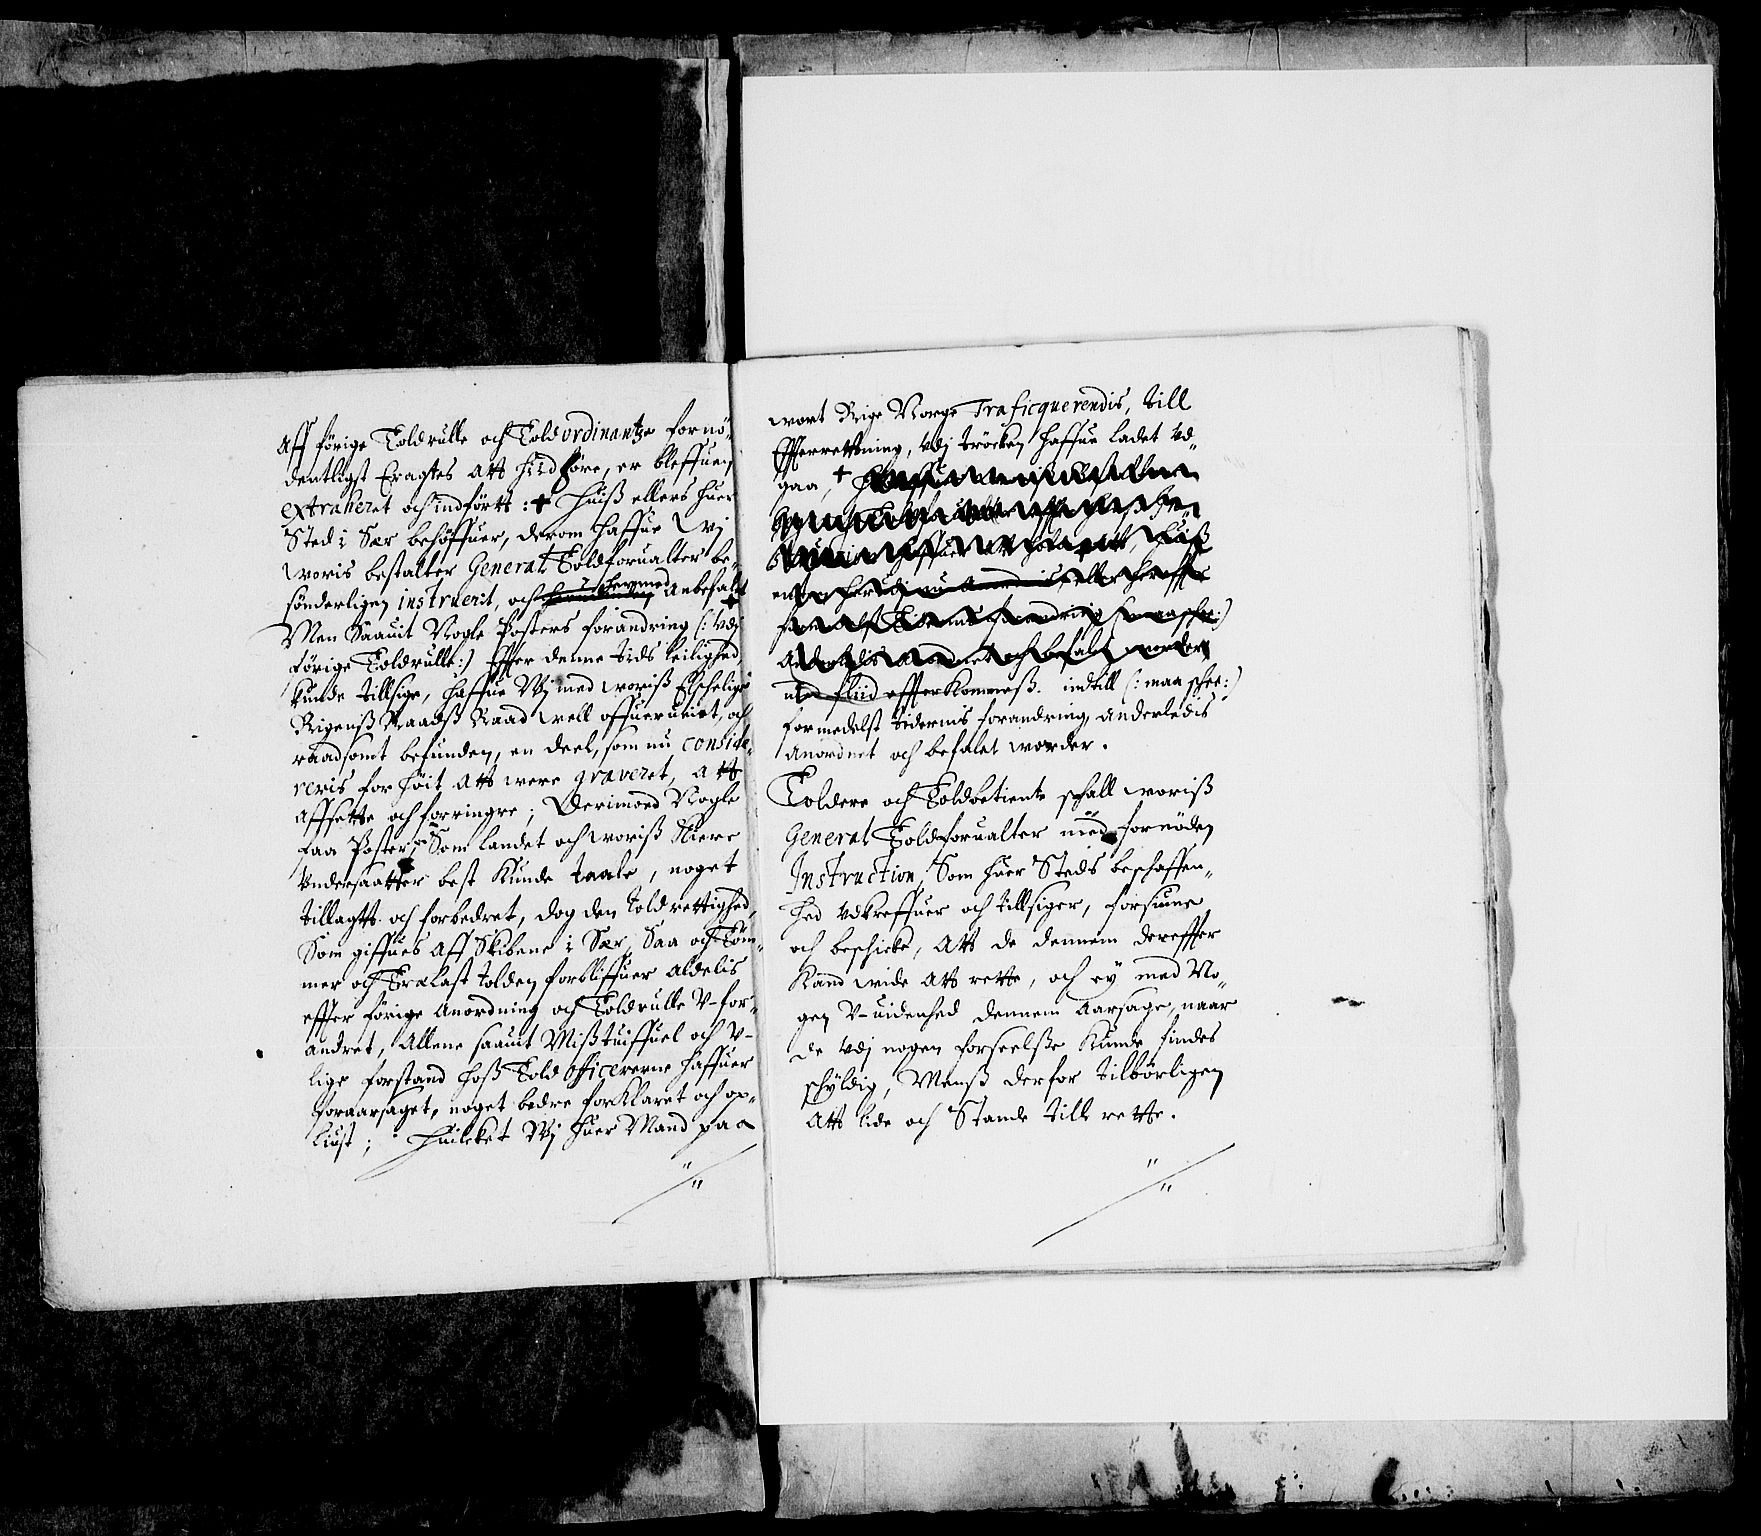 Aff förige Toldrulle och Toldordinantze fornö-
dentligst Eragtes att hid före, er bleffuen
extraheret och indförtt :+ Huiß ellers huer
Sted i Sær behöffuer, derom haffue Wj
woris bestalter General Toldforualter be-
sönderligen instruerit, och hermed Anbefalet
Men Saauit Nogle Posters forandring (: vdj
förige Toldrulle:) Effter denne tids leilighed,
kunde tillsige, haffue Wj med woriß Elschelige
Rigenß Raadß Raad well offuerueiet, och
raadsomt befunden, en deel, som nu conside-
reris for höit att were graveret, att
affsette och forringre; Derimoed Nogle
faa Poster, Som landet och woriß Kiere
Vndersaatter best kunde taale, noget
tillagtt och forbedret, dog den Toldrettighed,
Som giffues aff Skibene i Sær, Saa och Töm-
mer och Trælast tolden forbliffuer aldelis
effter förige Anordning och Toldrulle V-for-
andret, Allene saauit Mißtuiffuel och V-
lige forstand hoß Told officererne haffuer
foraarsaget, noget bedre forklaret och op-
liust; Huilcket Wj huer Mand paa
wort Rige Norge Traficquerendis, till
Effterrettning, vdj tröcken haffue ladet vd-
gaa, +
eller hereffter
(: maa schee:)
Anderledis Anordnet och befalet worder
med fliid effterkommeß. indtill (: maa schee:)
formedelst tidernis forandring, Anderledis
Anordnet och befalet worder.
Toldere och Toldbetiente schall woriß
General Toldforualter med fornöden
Instruction, Som huer Steds beschaffen-
hed vdkreffuer och tillsiger, forsiune
och beschicke, Att de dennem dereffter
kand wide att rette, och ey med No-
gen V-uidenhed dennem Aarsage, naar
de vdj nogen forseelße kunde findes
schyldig, Menß derfor tilbörligen
att lide och Stande till rette.